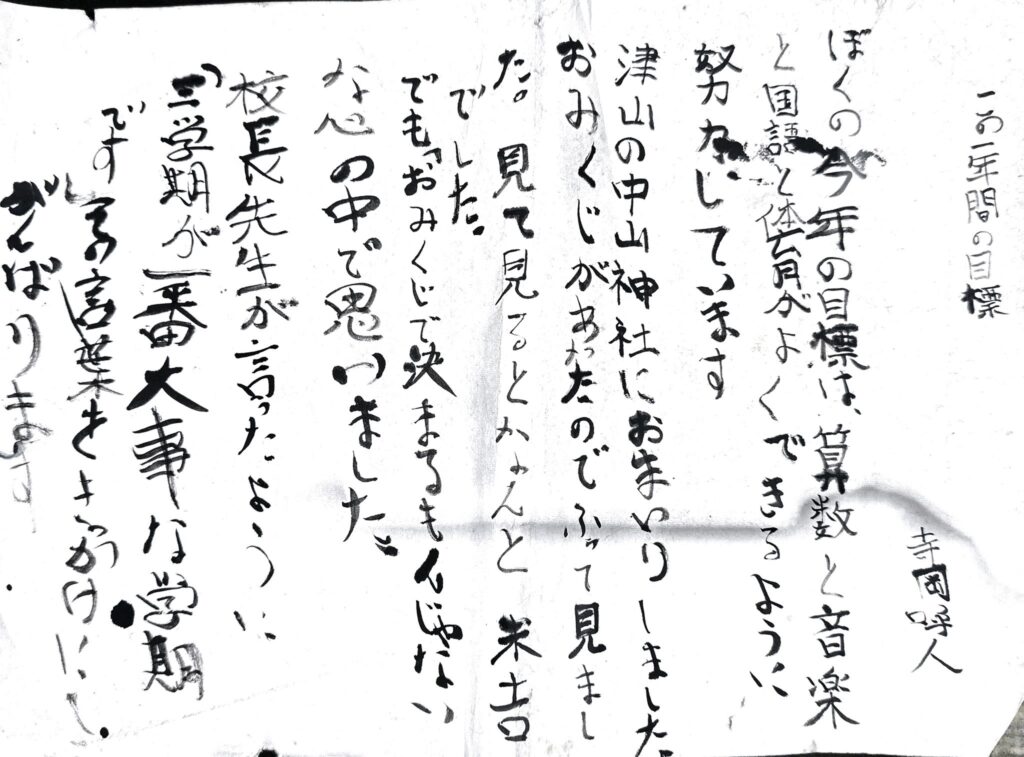 この一年間の目標
寺岡呼人
ぼくの今年の目標は、算数と音楽
と国語と体育がよくできるように
努力しています
津山の中山神社におまいりしました。
おみくじがあったのでふって見まし
た。見て見るとなんと末吉
でした。
でも「おみくじで決まるもんじゃない
な心の中で思いました。
校長先生が言ったように
「三学期が一番大事な学期
です」その言葉を かけにし
がんばります